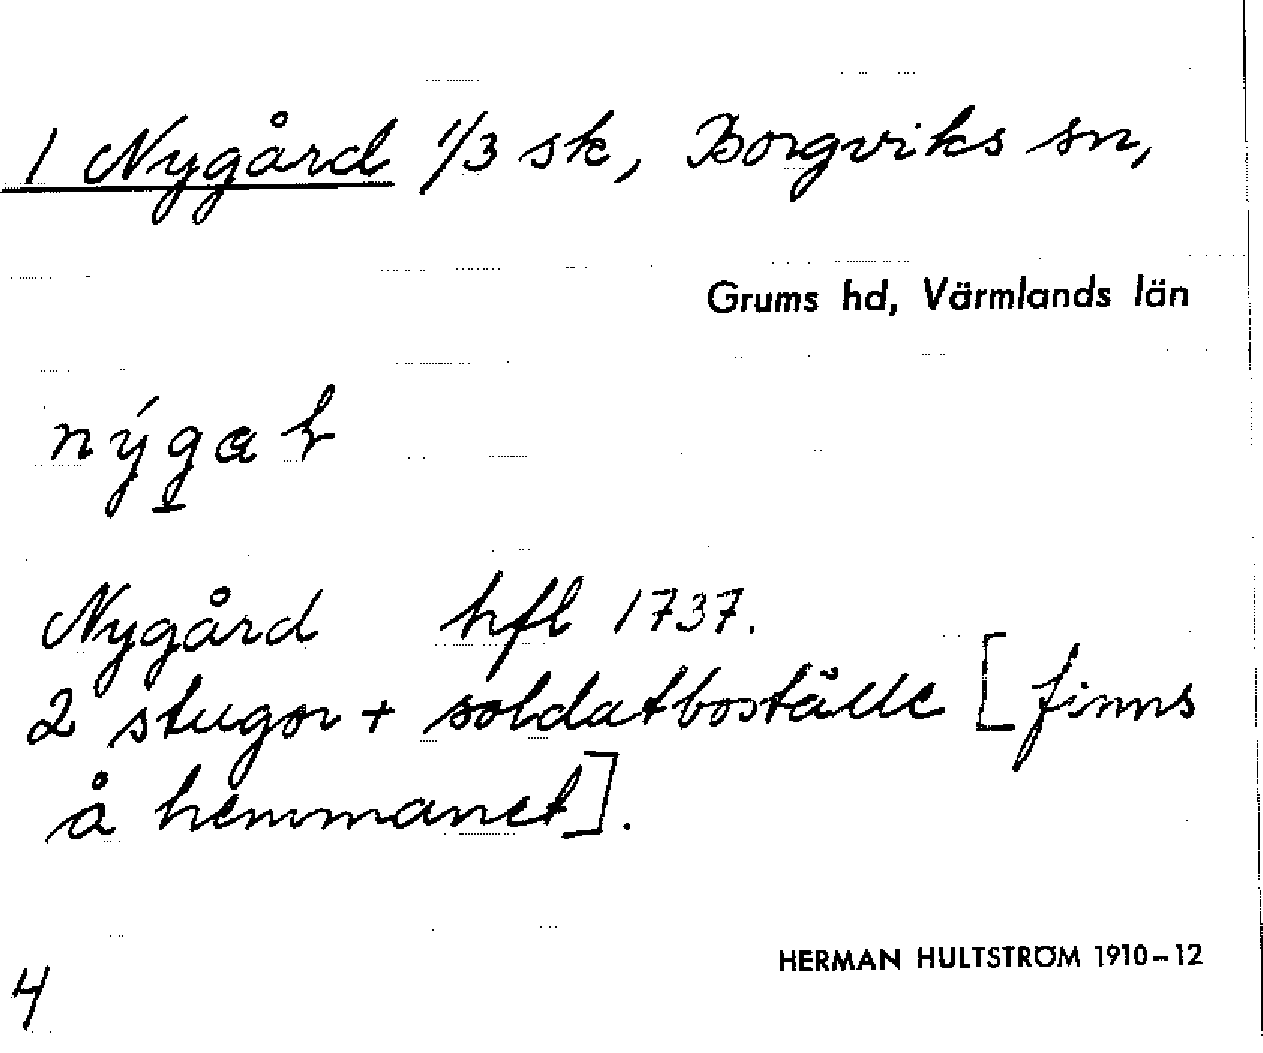 1 Nygård 1/3 sk, Borgviks sn,
Grums hd, Värmlands län
Nygård hfl 1737.
2 stugor + soldatboställe [finns
å hemmanet].
HERMAN HULTSTRÖM 1910-12
4